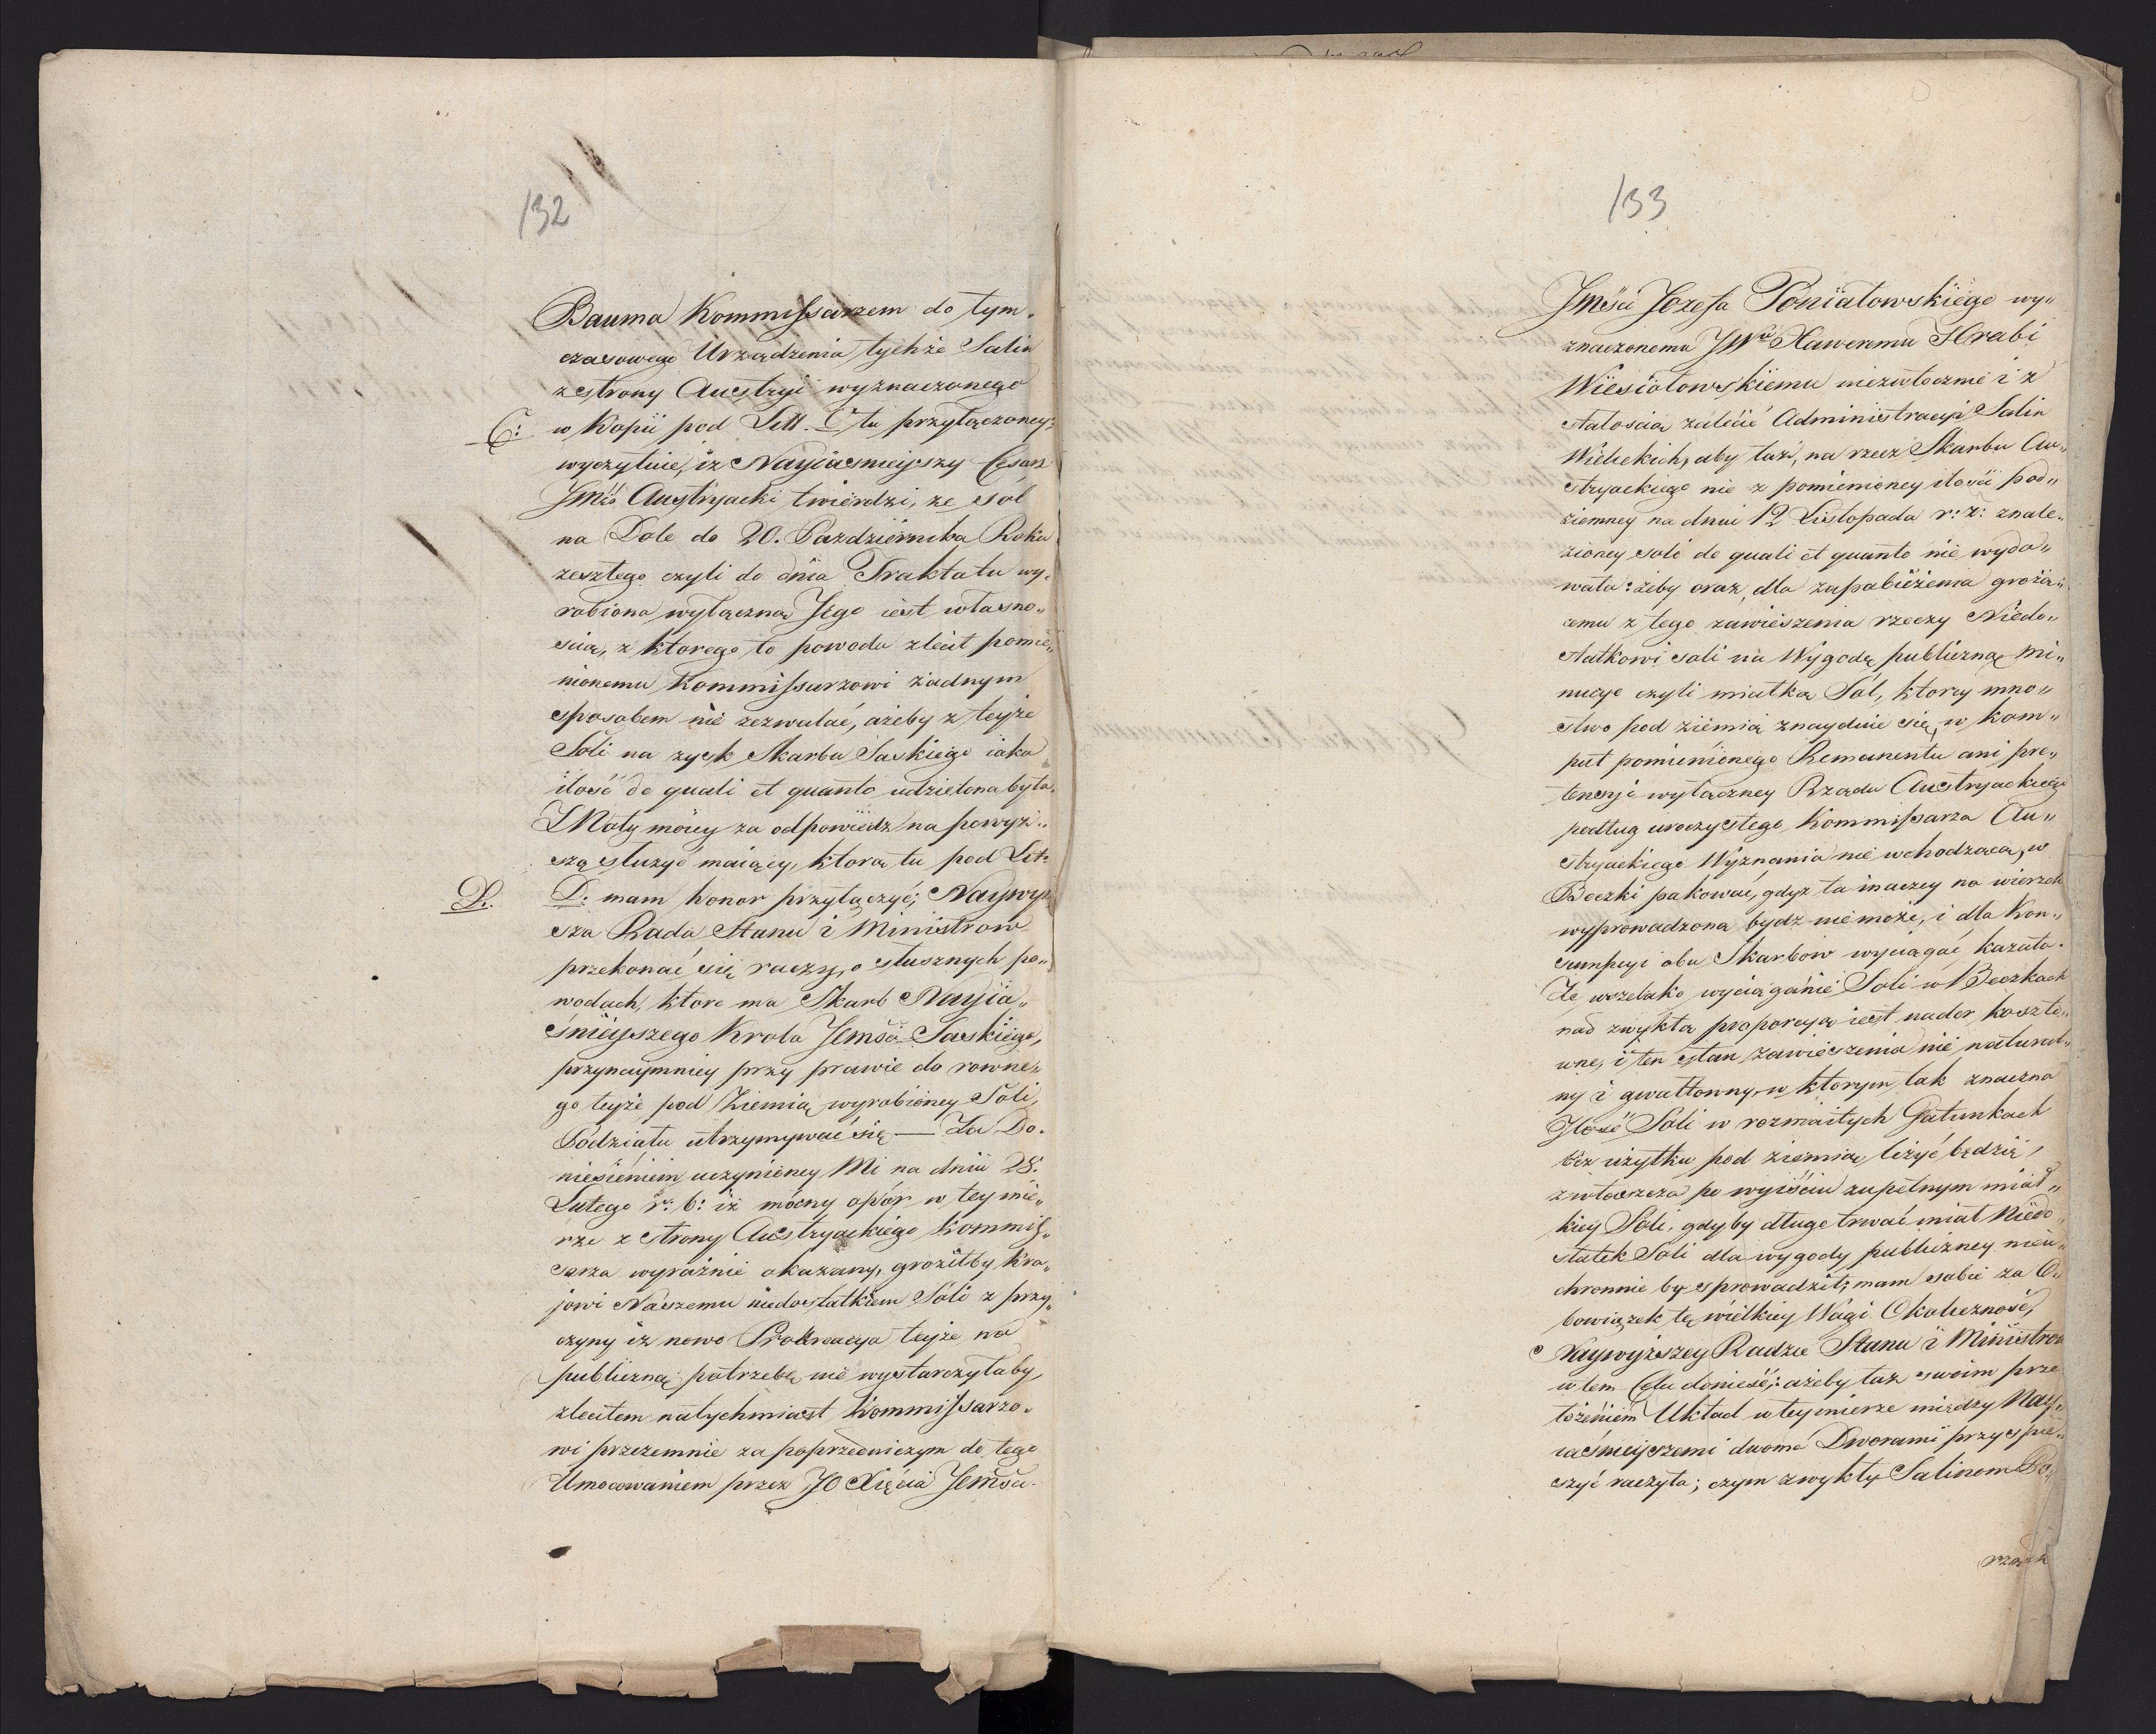 132
Bauma Kommissarzem do tym„
czasowego Urządzenia tychże Salin
ze strony Austryi wyznaczonego
C: w Kopii pod Litt. C tu przyłączoney;
wyczytuie, iz Nayiasnieyszy Cesarz
Jmść Austryacki twierdzi, ze sol
na Dole do 20. Pazdziernika Roku
zeszłego czyli do dnia Traktatu wy„
robiona wyłączną Jego iest własno„
scią, z ktorego to powodu zlecił pomie„
nionemu Kommissarzowi żadnym
sposobem nie zezwalać, ażeby z teyże
Soli na zysk Skarbu Saskiego iaka
ilość de quali et quanto udzielona była.
Z Noty móiey za odpowiedz na powyż„
szą służyć maiącey, ktorą tu pod Lit:
D. D: mam honor przyłączyć; Naywyż„
sza Rada Stanu i Ministrow
przekonać się raczy, o słusznych po„
wodach, ktore ma Skarb Nayia„
śnieyszego Krola Jemści Saskiego,
przynaymniey przy prawie do rowne„
go teyże pod Ziemią wyrobioney Soli,
Podziału utrzymywać się — Za Do„
niesieniem uczynioney Mi na dniu 28.
Lutego r: b: iż mócny opór w tey mie„
rze z strony Austryackiego Kommis„
sarza wyraźnie okazany, groziłby Kra„
jowi Naszemu niedostatkiem Soli z przy„
czyny iz nowo Prokreacya teyże na
publiczną potrzebę nie wystarczyłaby,
zleciłem natychmiast Kommissarzo„
wi przezemnie za poprzedniczym do tego
Umocowaniem przez JO Xięcia Jemści
133
Jmści Jozefa Poniatowskiego wy„
znaczonemu JWu Xaweremu Hrabi
Wiesiołowskiemu niezwłocznie i z
stałoscią zalécić Administracyi Salin
Wielickich, aby taż, na rzecz Skarbu Au„
stryackiego nic z pomienioney ilości pod„
ziemney na dniu 12 Listopada r: z: znale„
zioney soli de quali et quanto nie wyda„
wała: żeby oraz, dla zapobieżenia grożą„
cemu z tego zawieszenia rzeczy Niedo„
statkowi soli na Wygodę publiczną mi„
nucye czyli miałką Sól, ktorey mno„
stwo pod ziemią znayduie się, w kom„
put pomienionego Remanentu ani pre„
tensyi wyłączney Rządu Austryackiego
podług uroczystego Kommissarza Au„
stryackiego Wyznania nie wchodzącą, w
Beczki pakować, gdyz ta inaczey na wierzch
wyprowadzona bydz nie może, i dla Kon„
sumpcyi obu Skarbow wyciągać kazała.
Ze wszelako wyciąganie Soli w Beczkach
nad zwykłą proporcyą iest nader koszto„
wne, i ten stan zawieszenia nie natural„
ny i gwałtowny, w ktorym tak znaczna
Ilość Soli w rozmaitych Gatunkach
bez użytku pod ziemią leżyć będzie,
zwłaszcza po wyiściu zupełnym miał„
kiey Soli, gdyby długo trwać miał Niedo„
statek Soli dla wygody publiczney nieu„
chronnie by sprowadził; mam sobie za O„
bowiązek tę wielkiey Wagi Okoliczność,
Naywyższey Radzie Stanu i Ministrow
w tem Celu donieść; ażeby taz swoim prze„
łożeniem Układ w tey mierze między Nay„
iaśnieyszemi dwoma Dworami przyspie„
szyć raczyła; czym zwykły Salinom Po„
rządek